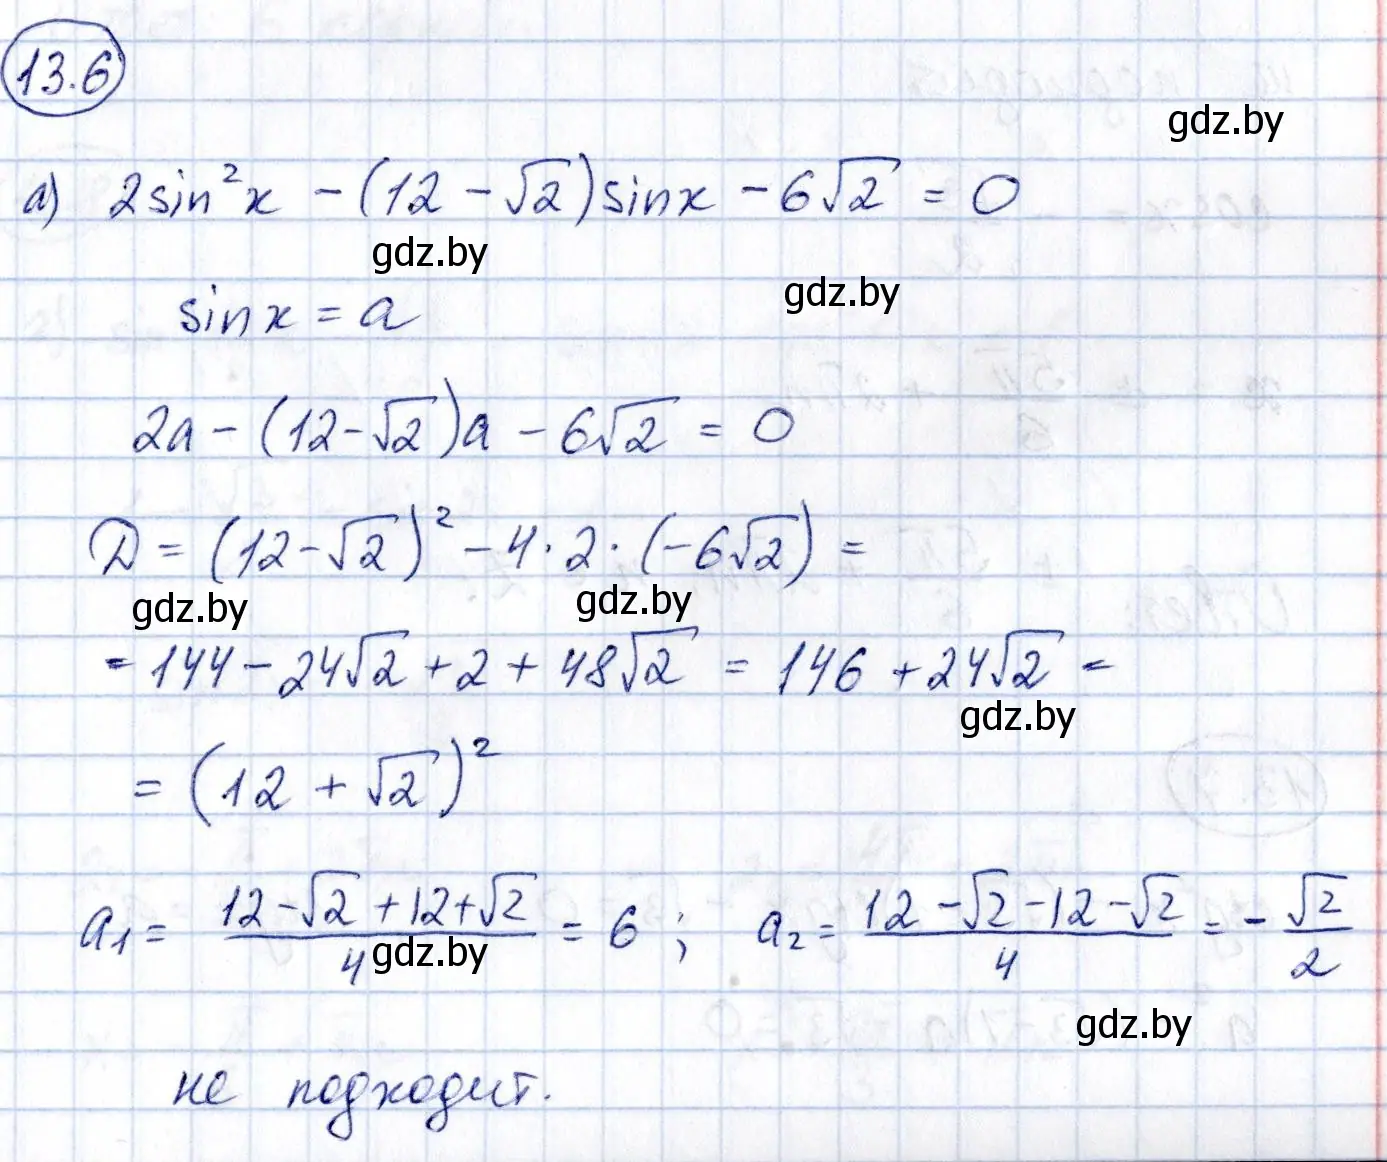 13.6
gdz.by
а) 2sin²x - (12 - √2)sinx - 6√2 = 0
gdz.by
gdz.by
sinx = a
2a - (12 - √2)a - 6√2 = 0
D = (12 - √2)² - 4 · 2 · (-6√2) =
gdz.by gdz.by
= 144 - 24√2 + 2 + 48√2 = 146 + 24√2 =
gdz.by
= (12 + √2)²
a₁ = (12 - √2 + 12 + √2)/4 = 6 ; a₂ = (12 - √2 - 12 - √2)/4 = - √2/2
gdz.by
gdz.by
не подходит.